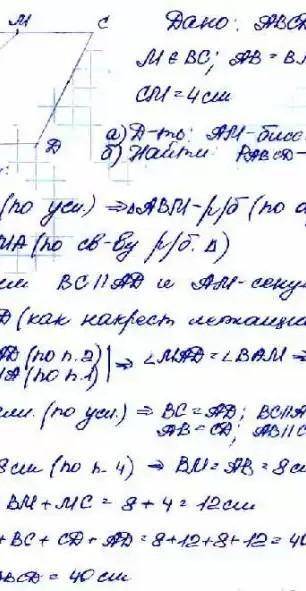 M C
Дано: ABCD
M ∈ BC; AB = BM
CM = 4 см
D
а) Д-ть: AM - бисс.
б) Найти: PABCD -
(по усл.) ⇒ △ABM - р/б (по о
MA (по св-ву р/б. △)
ем BC || AD и AM - секу
D (как накрест лежащи
AD (по п. 2)
MA (по п. 1) ⇒ ∠MAD = ∠BAM ⇒
(по усл.) ⇒ BC = AD; BC || A
AB = CD; AB || C
8 см (по п. 4) ⇒ BM = AB = 8 см
BM + MC = 8 + 4 = 12 см
+ BC + CD + AD = 8 + 12 + 8 + 12 = 40
ABCD = 40 см